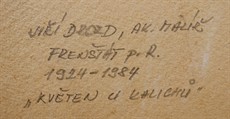 JIŘÍ DROZD, AK. MALÍŘ
FRENŠTÁT p. R.
1924-1984
"KVĚTEN U KALICHŮ"